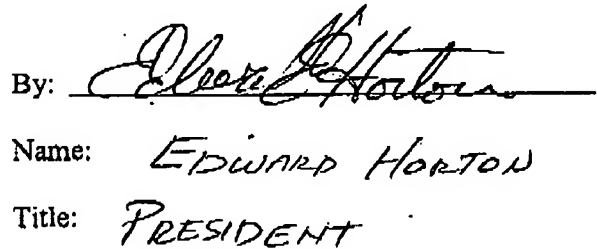 By: Edward Horton
Name: EDWARD HORTON
Title: PRESIDENT